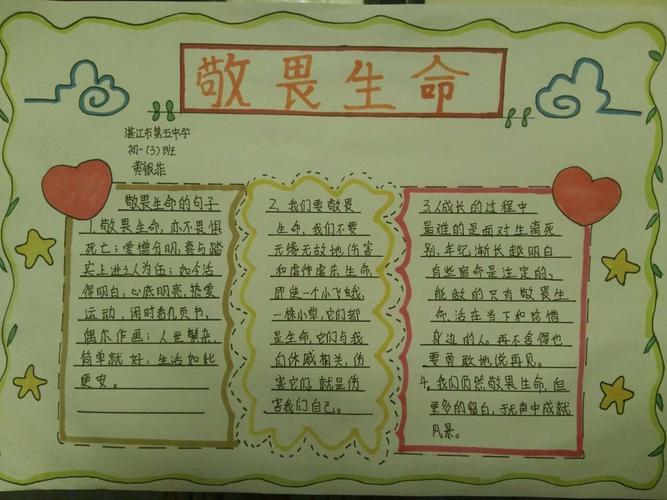 敬畏生命
湛江市第五中学
初一(3)班
黄银菲
敬畏生命的句子
1. 敬畏生命,亦不畏惧
死亡;爱憎分明,喜与踏
实上进之人为伍;如今活
得明白,心底明亮,热爱
运动,闲时看几页书,
偶尔作画;人世繁杂,
简单就好,生活如此
更安。
2、我们要敬畏
生命,我们不要
无缘无故地伤害
和虐待虐杀生命,
即使一个小飞蛾,
一株小草,它们都
是生命,它们与我
们休戚相关,伤
害它们,就是伤
害我们自己。
3.人成长的过程中
最难的是面对生离死
别,年纪渐长越明白
有些宿命是注定的,
能做的只有敬畏生
命,活在当下和珍惜
身边的人。再不舍得也
要勇敢地说再见。
4、我们仍然敬畏生命,但
更多的留白,于无声中成就
风景。